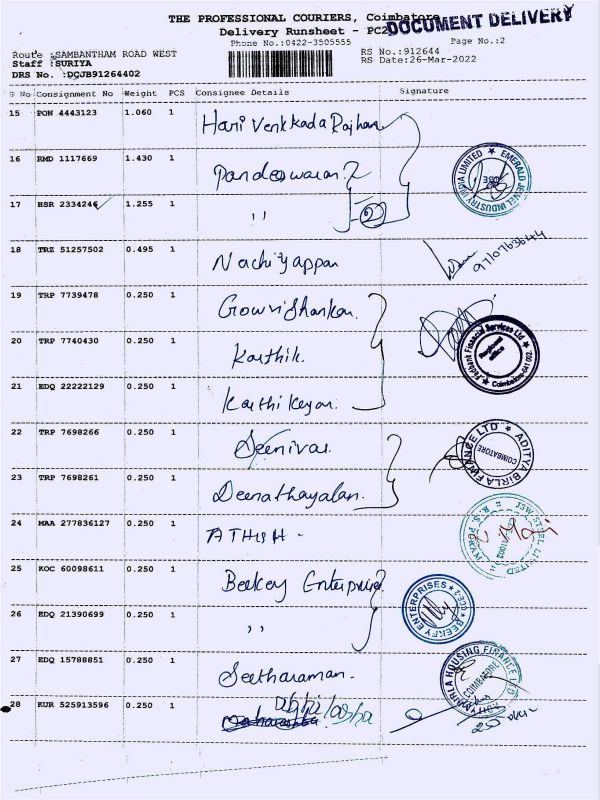 THE PROFESSIONAL COURIERS, Coimbatore
DOCUMENT DELIVERY
Delivery Runsheet - PC2
Phone No.:0422-3505555
Page No.:2
Route :SAMBANTHAM ROAD WEST
RS No.:912644
Staff :SURIYA
RS Date:26-Mar-2022
DRS No. :DCJB91264402
S No Consignment No Weight PCS Consignee Details Signature
15 PON 4443123 1.060 1 Hari Venkkada Rajhan
16 RMD 1117669 1.430 1 Pandeswaran
EMERALD JEWEL INDUSTRY INDIA LIMITED
CBE
17 HSR 2334246 1.255 1 " 2
18 TRZ 51257502 0.495 1 Nachiyappan
9710763644
19 TRP 7739478 0.250 1 Gowrishankar
20 TRP 7740430 0.250 1 Karthik.
Financial Services Ltd
Registered Office
Coimbatore-641 002.
21 EDQ 22222129 0.250 1 Karthikeyan.
22 TRP 7698266 0.250 1 Seenivas.
ADITYA BIRLA FINANCE LTD
COIMBATORE
23 TRP 7698261 0.250 1 Deenathayalan.
24 MAA 277836127 0.250 1 ATHISH -
JSW STEEL LIMITED
25 KOC 60098611 0.250 1 Beekey Enterprises
BEEKEY ENTERPRISES
CBE-2
26 EDQ 21390699 0.250 1 "
27 EDQ 15788851 0.250 1 Seetharaman.
BIRLA HOUSING FINANCE LTD
COIMBATORE
28 KUR 525913596 0.250 1